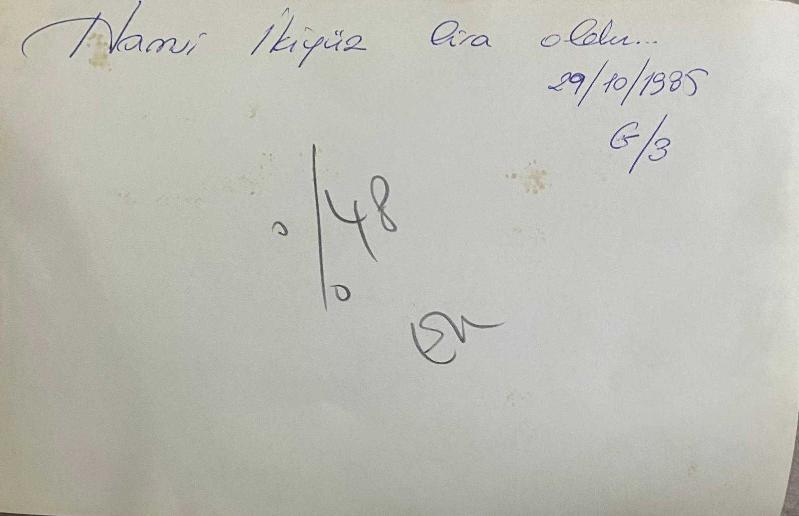 Namı İkiyüz lira oldu...
29/10/1985
G/3
%48